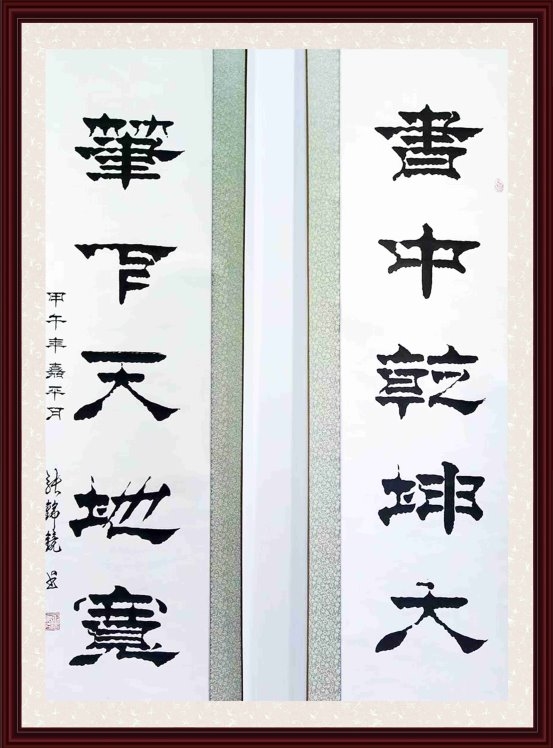 書中乾坤大
筆下天地寬
甲午年嘉平月